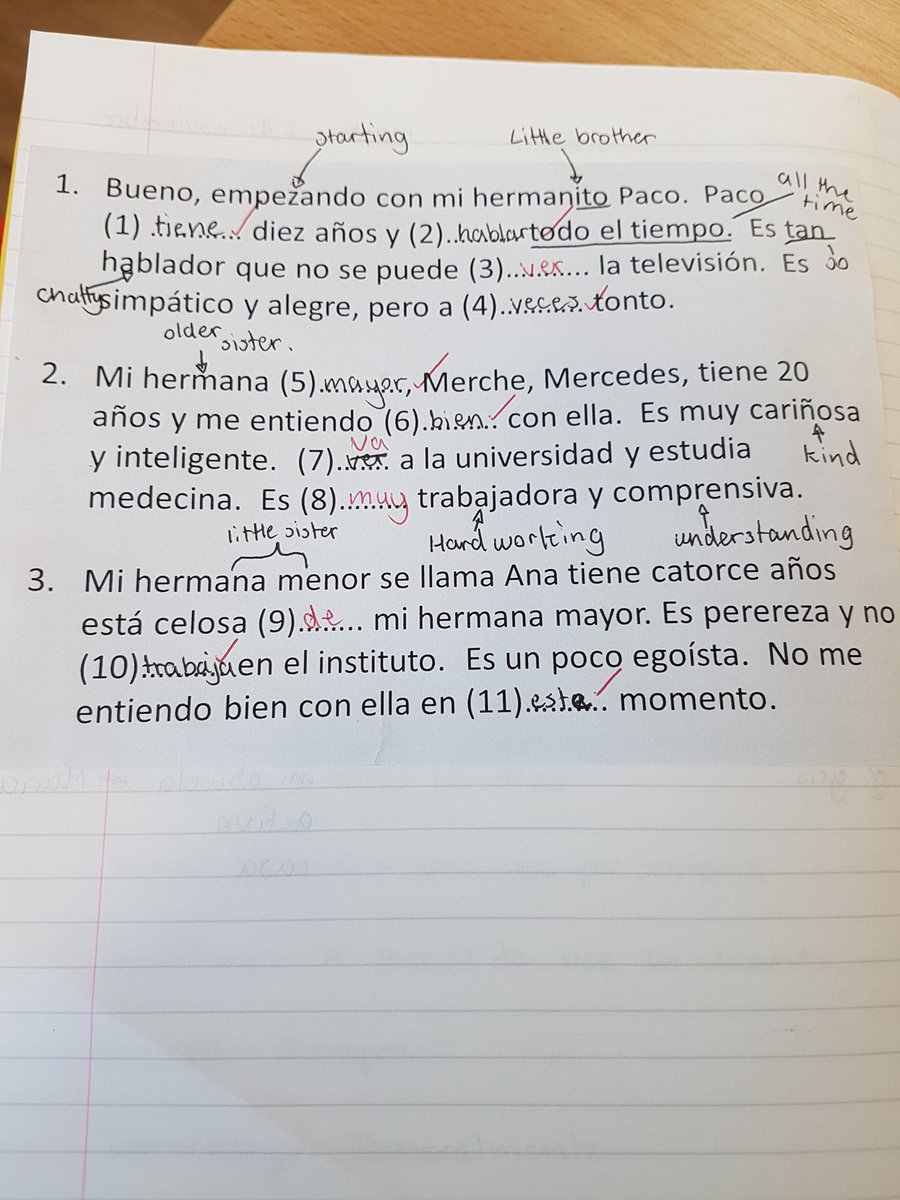 starting Little brother
1. Bueno, empezando con mi hermanito Paco. Paco all the time
(1) .tiene.. diez años y (2)..hablar todo el tiempo. Es tan
hablador que no se puede (3)..ver... la televisión. Es so
chatty simpático y alegre, pero a (4)..veces. tonto.
older sister.
2. Mi hermana (5).mayor, Merche, Mercedes, tiene 20
años y me entiendo (6).bien.. con ella. Es muy cariñosa
va
y inteligente. (7)..ver. a la universidad y estudia kind
medecina. Es (8).muy trabajadora y comprensiva.
little sister Hard working understanding
3. Mi hermana menor se llama Ana tiene catorce años
está celosa (9).de.... mi hermana mayor. Es perereza y no
(10).trabaja en el instituto. Es un poco egoísta. No me
entiendo bien con ella en (11).este.. momento.